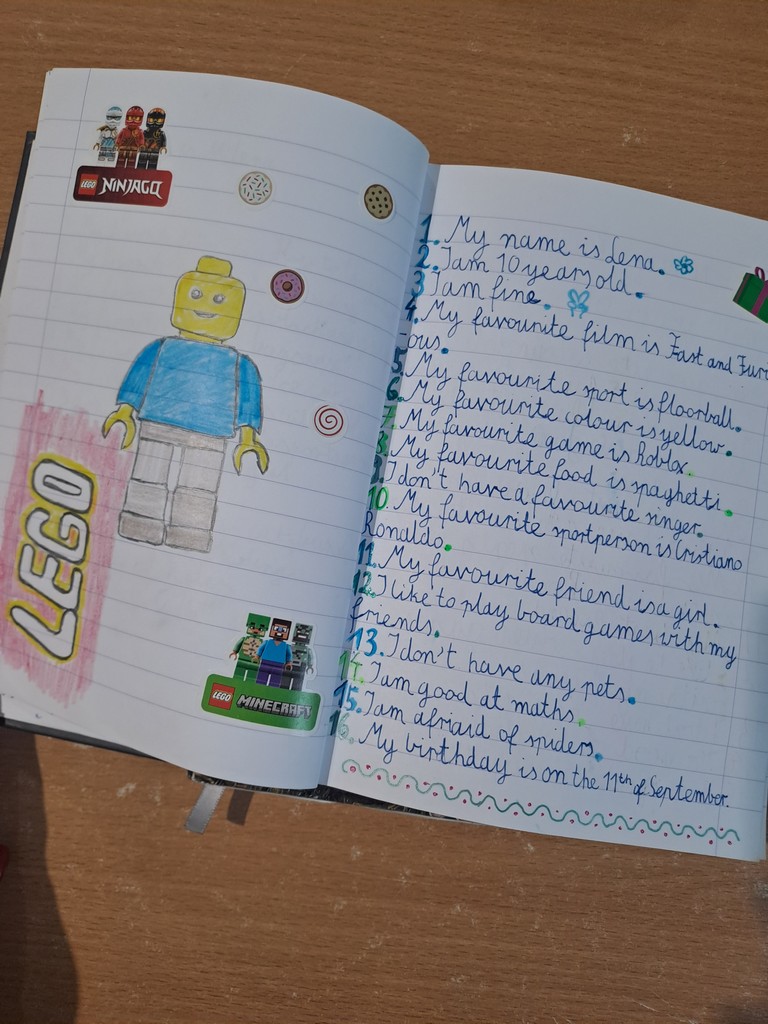 LEGO NINJAGO
LEGO
LEGO MINECRAFT
1. My name is Lena.
2. I am 10 years old.
3 I am fine.
4. My favourite film is Fast and Furi
ous.
5. My favourite sport is floorball.
6. My favourite colour is yellow.
7. My favourite game is Roblox.
8. My favourite food is spaghetti.
9 I don't have a favourite singer.
10. My favourite sportperson is Cristiano
Ronaldo.
11. My favourite friend is a girl.
12. I like to play board games with my
friends.
13. I don't have any pets.
14. I am good at maths.
15. I am afriaid of spiders.
16. My birthday is on the 11th of September.